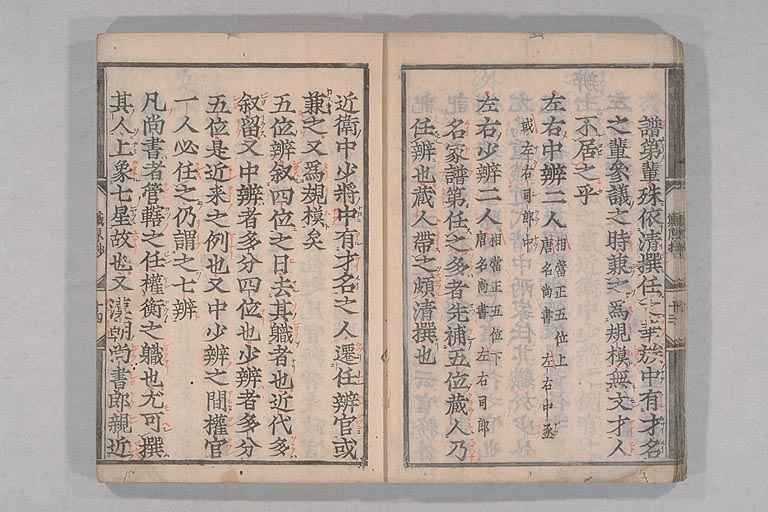 譜第輩殊依清撰任之華族中有才名
之輩參議之時兼之爲規模無文才人
不居之乎
左右中辨二人 相當正五位上 唐名尚書 左右中丞
或左右司郎中
左右少辨二人 相當正五位下 唐名尚書 左右司郎
名家譜第任之多者先補五位蔵人乃
任辨也蔵人帶之頗清撰也
近衛中少將中有才名之人遷任辨官或
兼之又爲規模矣
五位辨叙四位之日去其職者也近代多
叙留又中辨者多分四位也少辨者多分
五位是近来之例也又中少辨之間權官
一人必任之仍謂之七辨
凡尚書者管轄之任權衡之職也尤可撰
其人上象七星故也又漢朝尚書郎親近
職原抄
十四